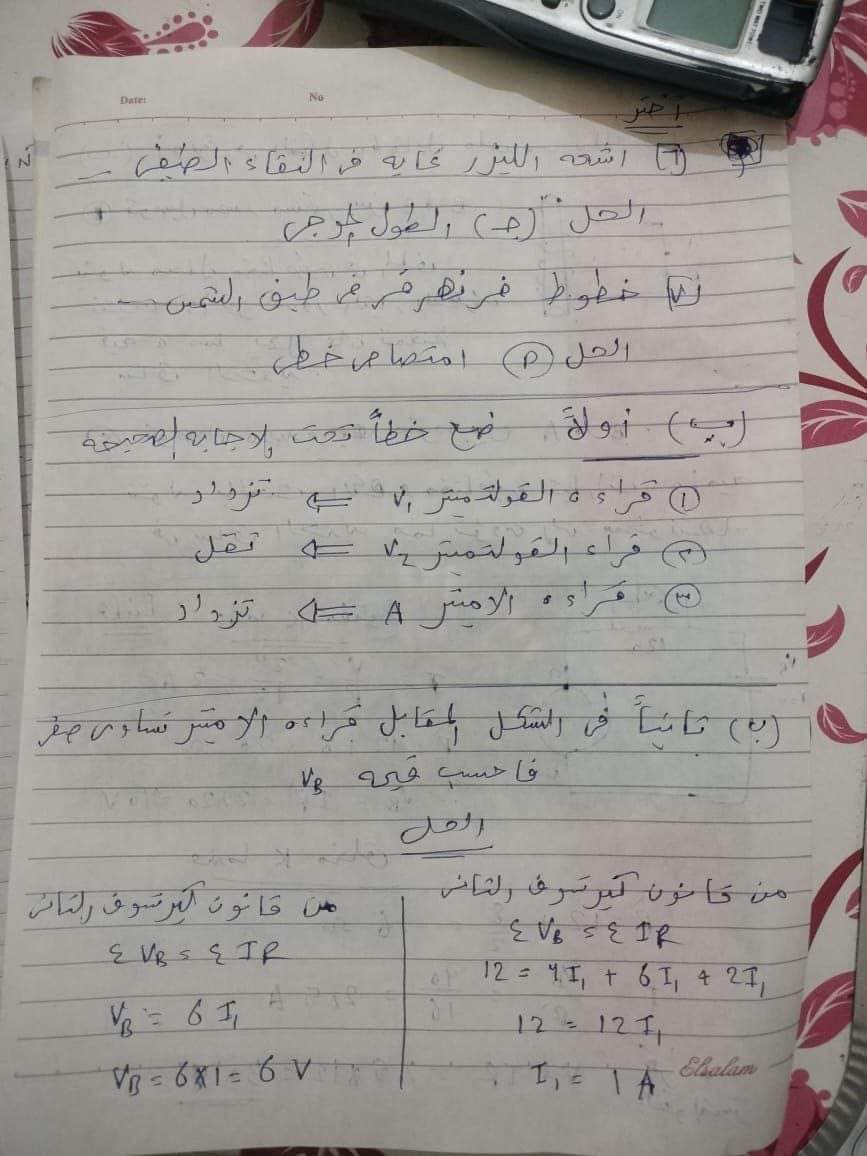 Date:
No
اختر
[٦] اشعه الليزر غايه فى النقاء الطيفى -
الحل (جـ) الطول الموجى
[٧] خطوط فرنهوفر فى طيف الشمس --
الحل (م) امتصاص خطى
(ب) أولاً ضع خطاً تحت الاجابه الصحيحه
(١) قراءه الڤولتميتر V₁ ⇐ تزداد
(٢) قراءه الڤولتميتر V₂ ⇐ تقل
(٣) قراءه الاميتر A ⇐ تزداد
(ب) ثانياً فى الشكل المقابل قراءه الاميتر تساوى صفر
فاحسب قيمه VB
الحل
من قانون كيرشوف الثانى
Σ VB = Σ IR
12 = 4I₁ + 6I₁ + 2I₁
12 = 12 I₁
I₁ = 1 A
من قانون كيرشوف الثانى
Σ VB = Σ IR
VB = 6 I₁
VB = 6×1 = 6 V
Elsalam